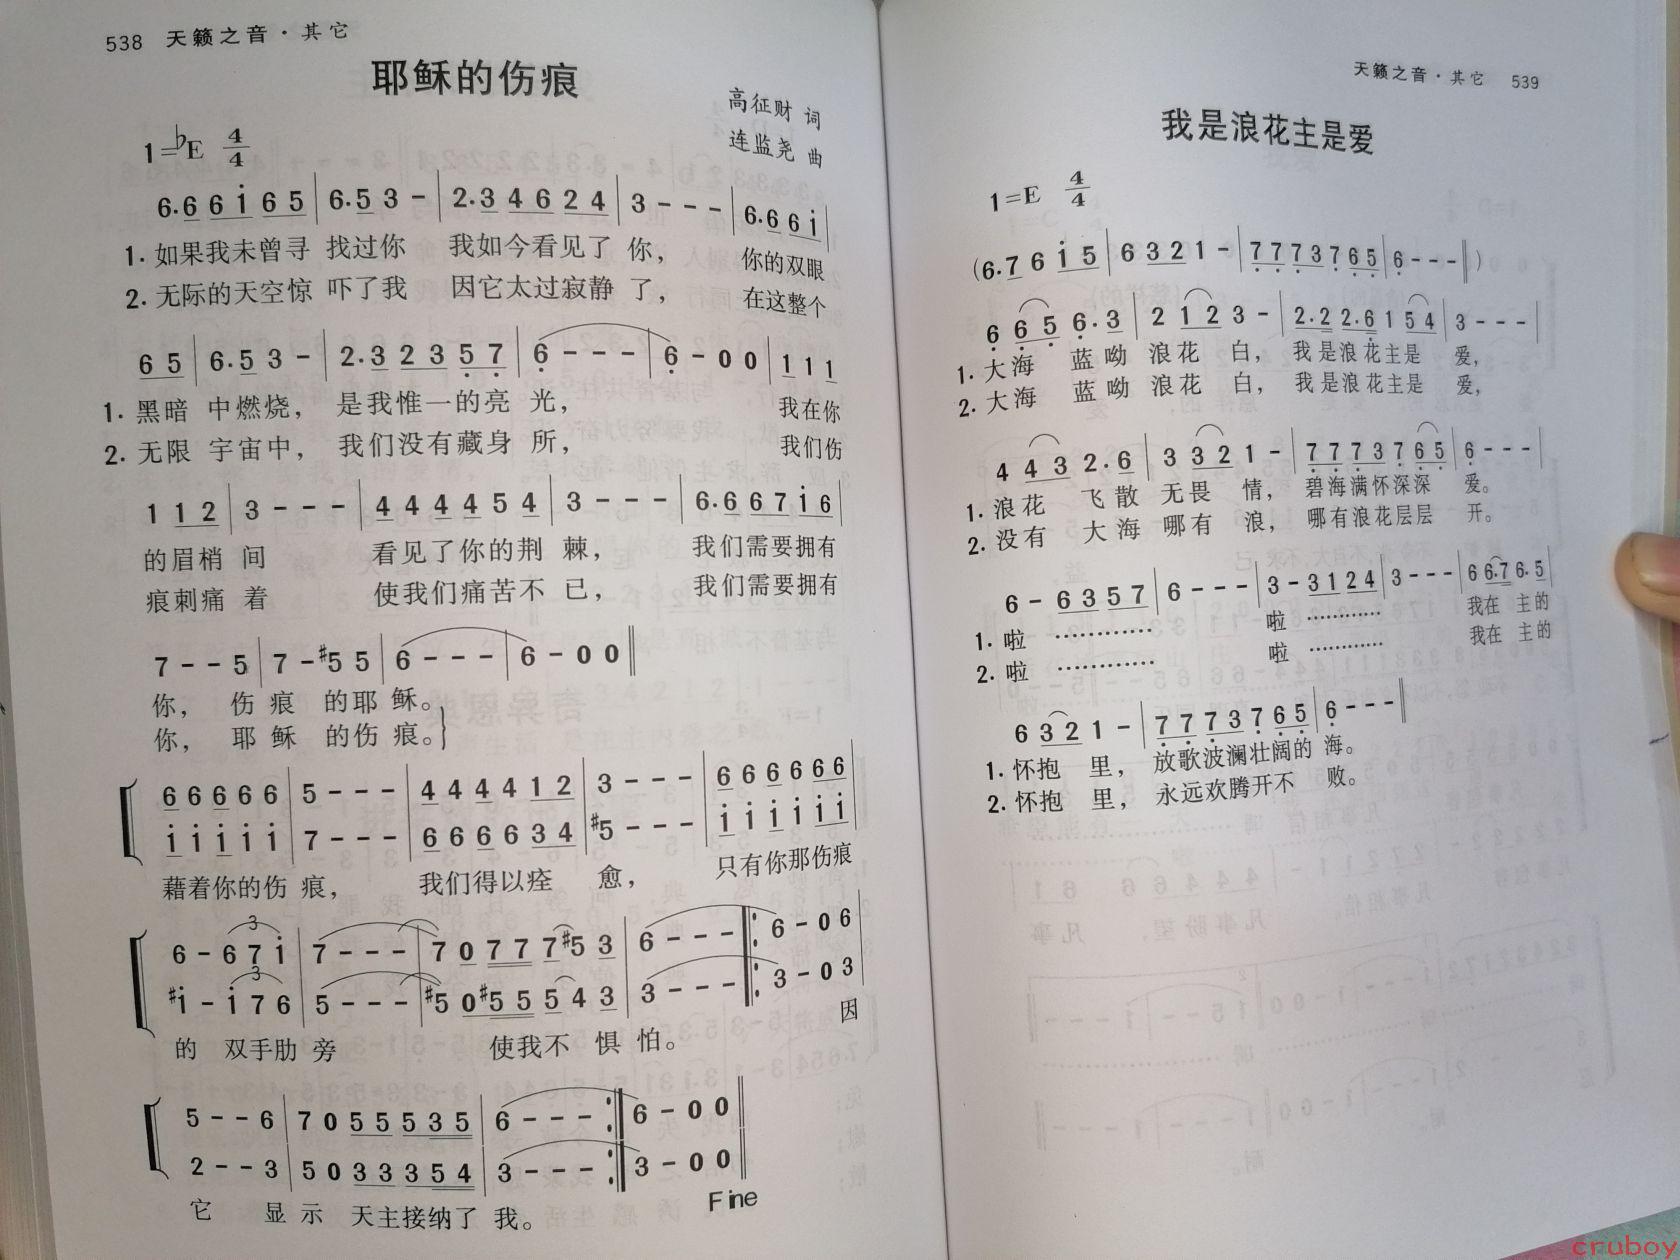 538 天籁之音·其它
耶稣的伤痕
高征财 词
连监尧 曲
1=♭E 4/4
6·6 6 i 6 5 | 6·5 3 - | 2·3 4 6 2 4 | 3 - - - | 6·6 6 i |
1. 如果我未曾寻 找过你 我如今看见了 你, 你的双眼
2. 无际的天空惊 吓了我 因它太过寂静 了, 在这整个
6 5 | 6·5 3 - | 2·3 2 3 5 7 | 6 - - - | 6 - 0 0 | 1 1 1
1. 黑暗 中燃烧, 是我惟一的亮 光, 我在你
2. 无限 宇宙中, 我们没有藏身 所, 我们伤
1 1 2 | 3 - - - | 4 4 4 4 5 4 | 3 - - - | 6·6 6 7 i 6 |
的眉梢 间 看见了你的荆 棘, 我们需要拥有
痕刺痛 着 使我们痛苦不 已, 我们需要拥有
7 - - 5 | 7 - #5 5 | 6 - - - | 6 - 0 0 ‖
你, 伤 痕 的耶 稣。
你, 耶 稣 的伤 痕。}
6 6 6 6 6 | 5 - - - | 4 4 4 4 1 2 | 3 - - - | 6 6 6 6 6 6 |
i i i i i | 7 - - - | 6 6 6 6 3 4 | #5 - - - | i i i i i i |
藉着你的伤 痕, 我们得以痊 愈, 只有你那伤痕
6 - 6 7 i | 7 - - - | 7 0 7 7 7 #5 3 | 6 - - - ‖: 6 - 0 6 |
#i - i 7 6 | 5 - - - | #5 0 #5 5 5 4 3 | 3 - - - ‖: 3 - 0 3 |
的 双手肋 旁 使我不 惧 怕。 因
5 - - 6 | 7 0 5 5 5 3 5 | 6 - - - :‖ 6 - 0 0 ‖
2 - - 3 | 5 0 3 3 3 5 4 | 3 - - - :‖ 3 - 0 0 ‖
它 显 示 天主接纳了 我。 Fine
天籁之音·其它 539
我是浪花主是爱
1=E 4/4
(6·7 6 i 5 | 6 3 2 1 - | 7 7 7 3 7 6 5 | 6 - - - ‖)
6 6 5 6·3 | 2 1 2 3 - | 2·2 2·6 1 5 4 | 3 - - - |
1. 大海 蓝呦 浪花 白, 我是浪花主是 爱,
2. 大海 蓝呦 浪花 白, 我是浪花主是 爱,
4 4 3 2·6 | 3 3 2 1 - | 7 7 7 3 7 6 5 | 6 - - - |
1. 浪花 飞散 无畏 情, 碧海满怀深深 爱。
2. 没有 大海 哪有 浪, 哪有浪花层层 开。
6 - 6 3 5 7 | 6 - - - | 3 - 3 1 2 4 | 3 - - - | 6 6·7 6·5
1. 啦 ………… 啦 ………… 我在 主的
2. 啦 ………… 啦 ………… 我在 主的
6 3 2 1 - | 7 7 7 3 7 6 5 | 6 - - - ‖
1. 怀抱 里, 放歌波澜壮阔的 海。
2. 怀抱 里, 永远欢腾开不 败。
cruboy